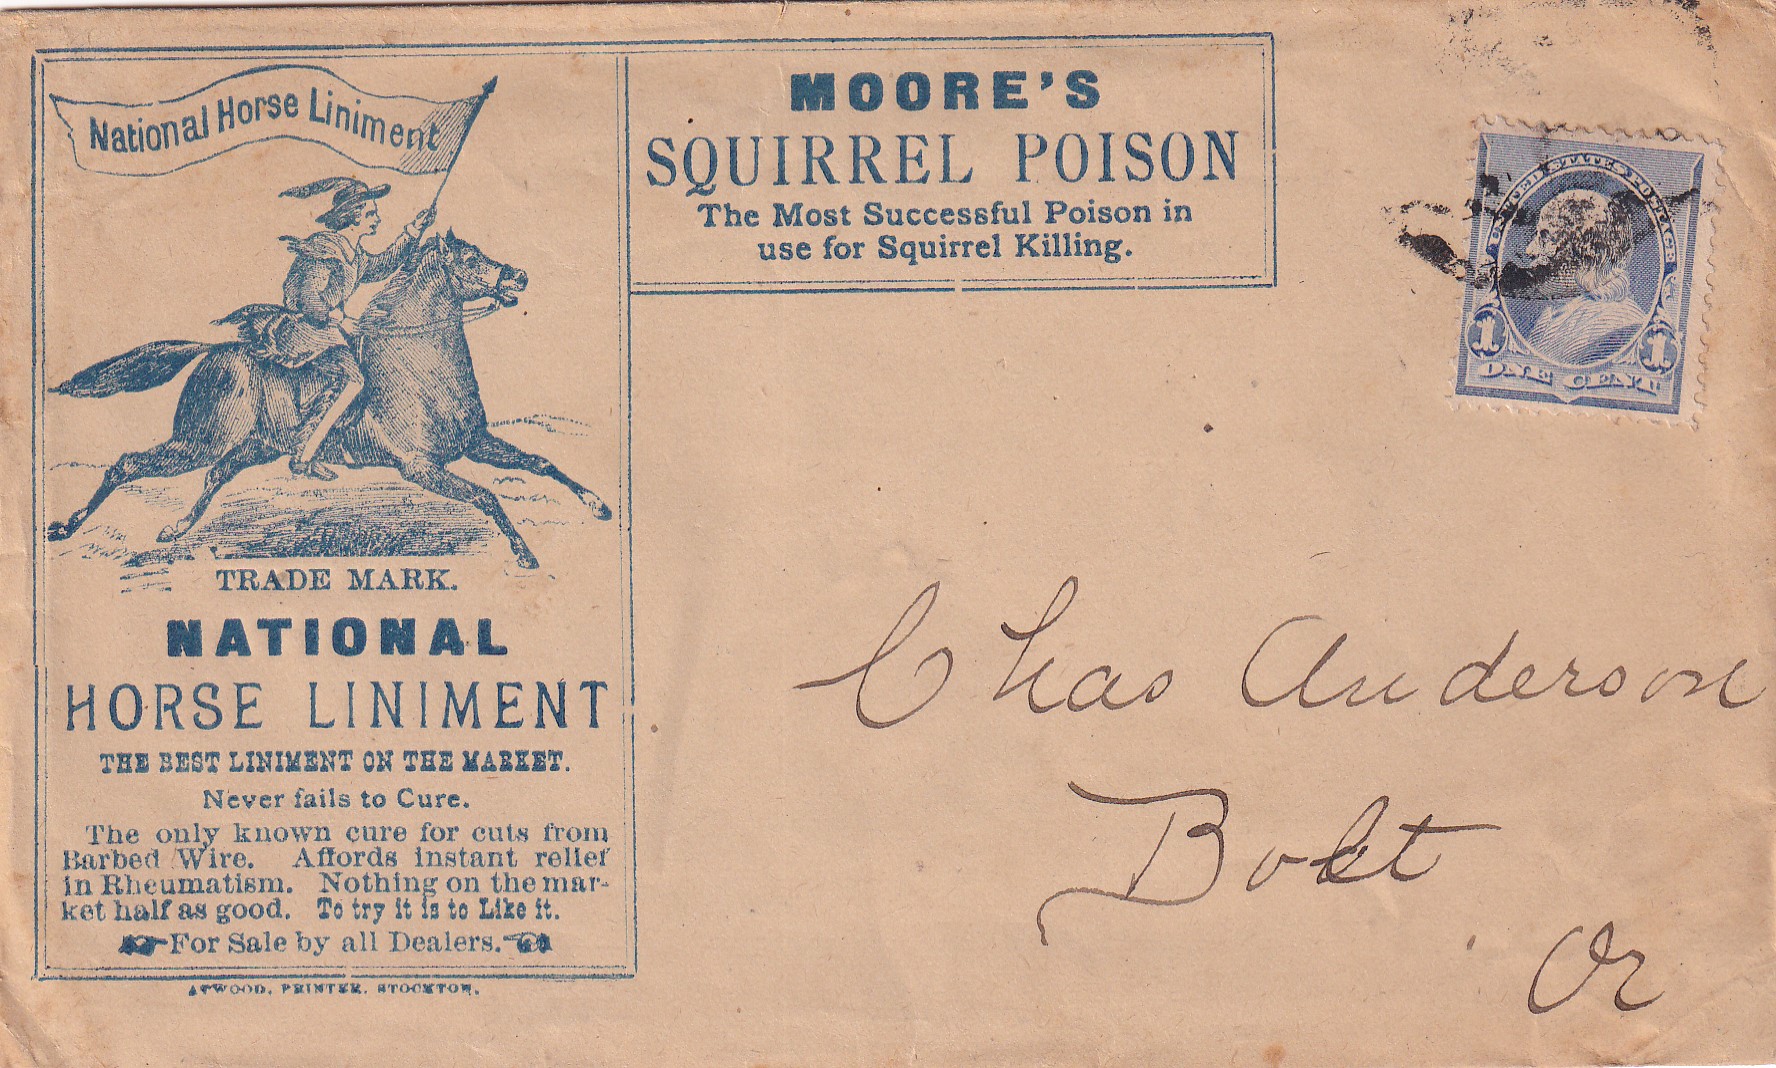 National Horse Liniment
TRADE MARK.
NATIONAL
HORSE LINIMENT
THE BEST LINIMENT ON THE MARKET.
Never fails to Cure.
The only known cure for cuts from
Barbed Wire. Affords instant relief
in Rheumatism. Nothing on the mar-
ket half as good. To try it is to Like it.
For Sale by all Dealers.
ATWOOD, PRINTER, STOCKTON.
MOORE'S
SQUIRREL POISON
The Most Successful Poison in
use for Squirrel Killing.
UNITED STATES POSTAGE
1 1
ONE CENT
Chas Anderson
Bolt
Or